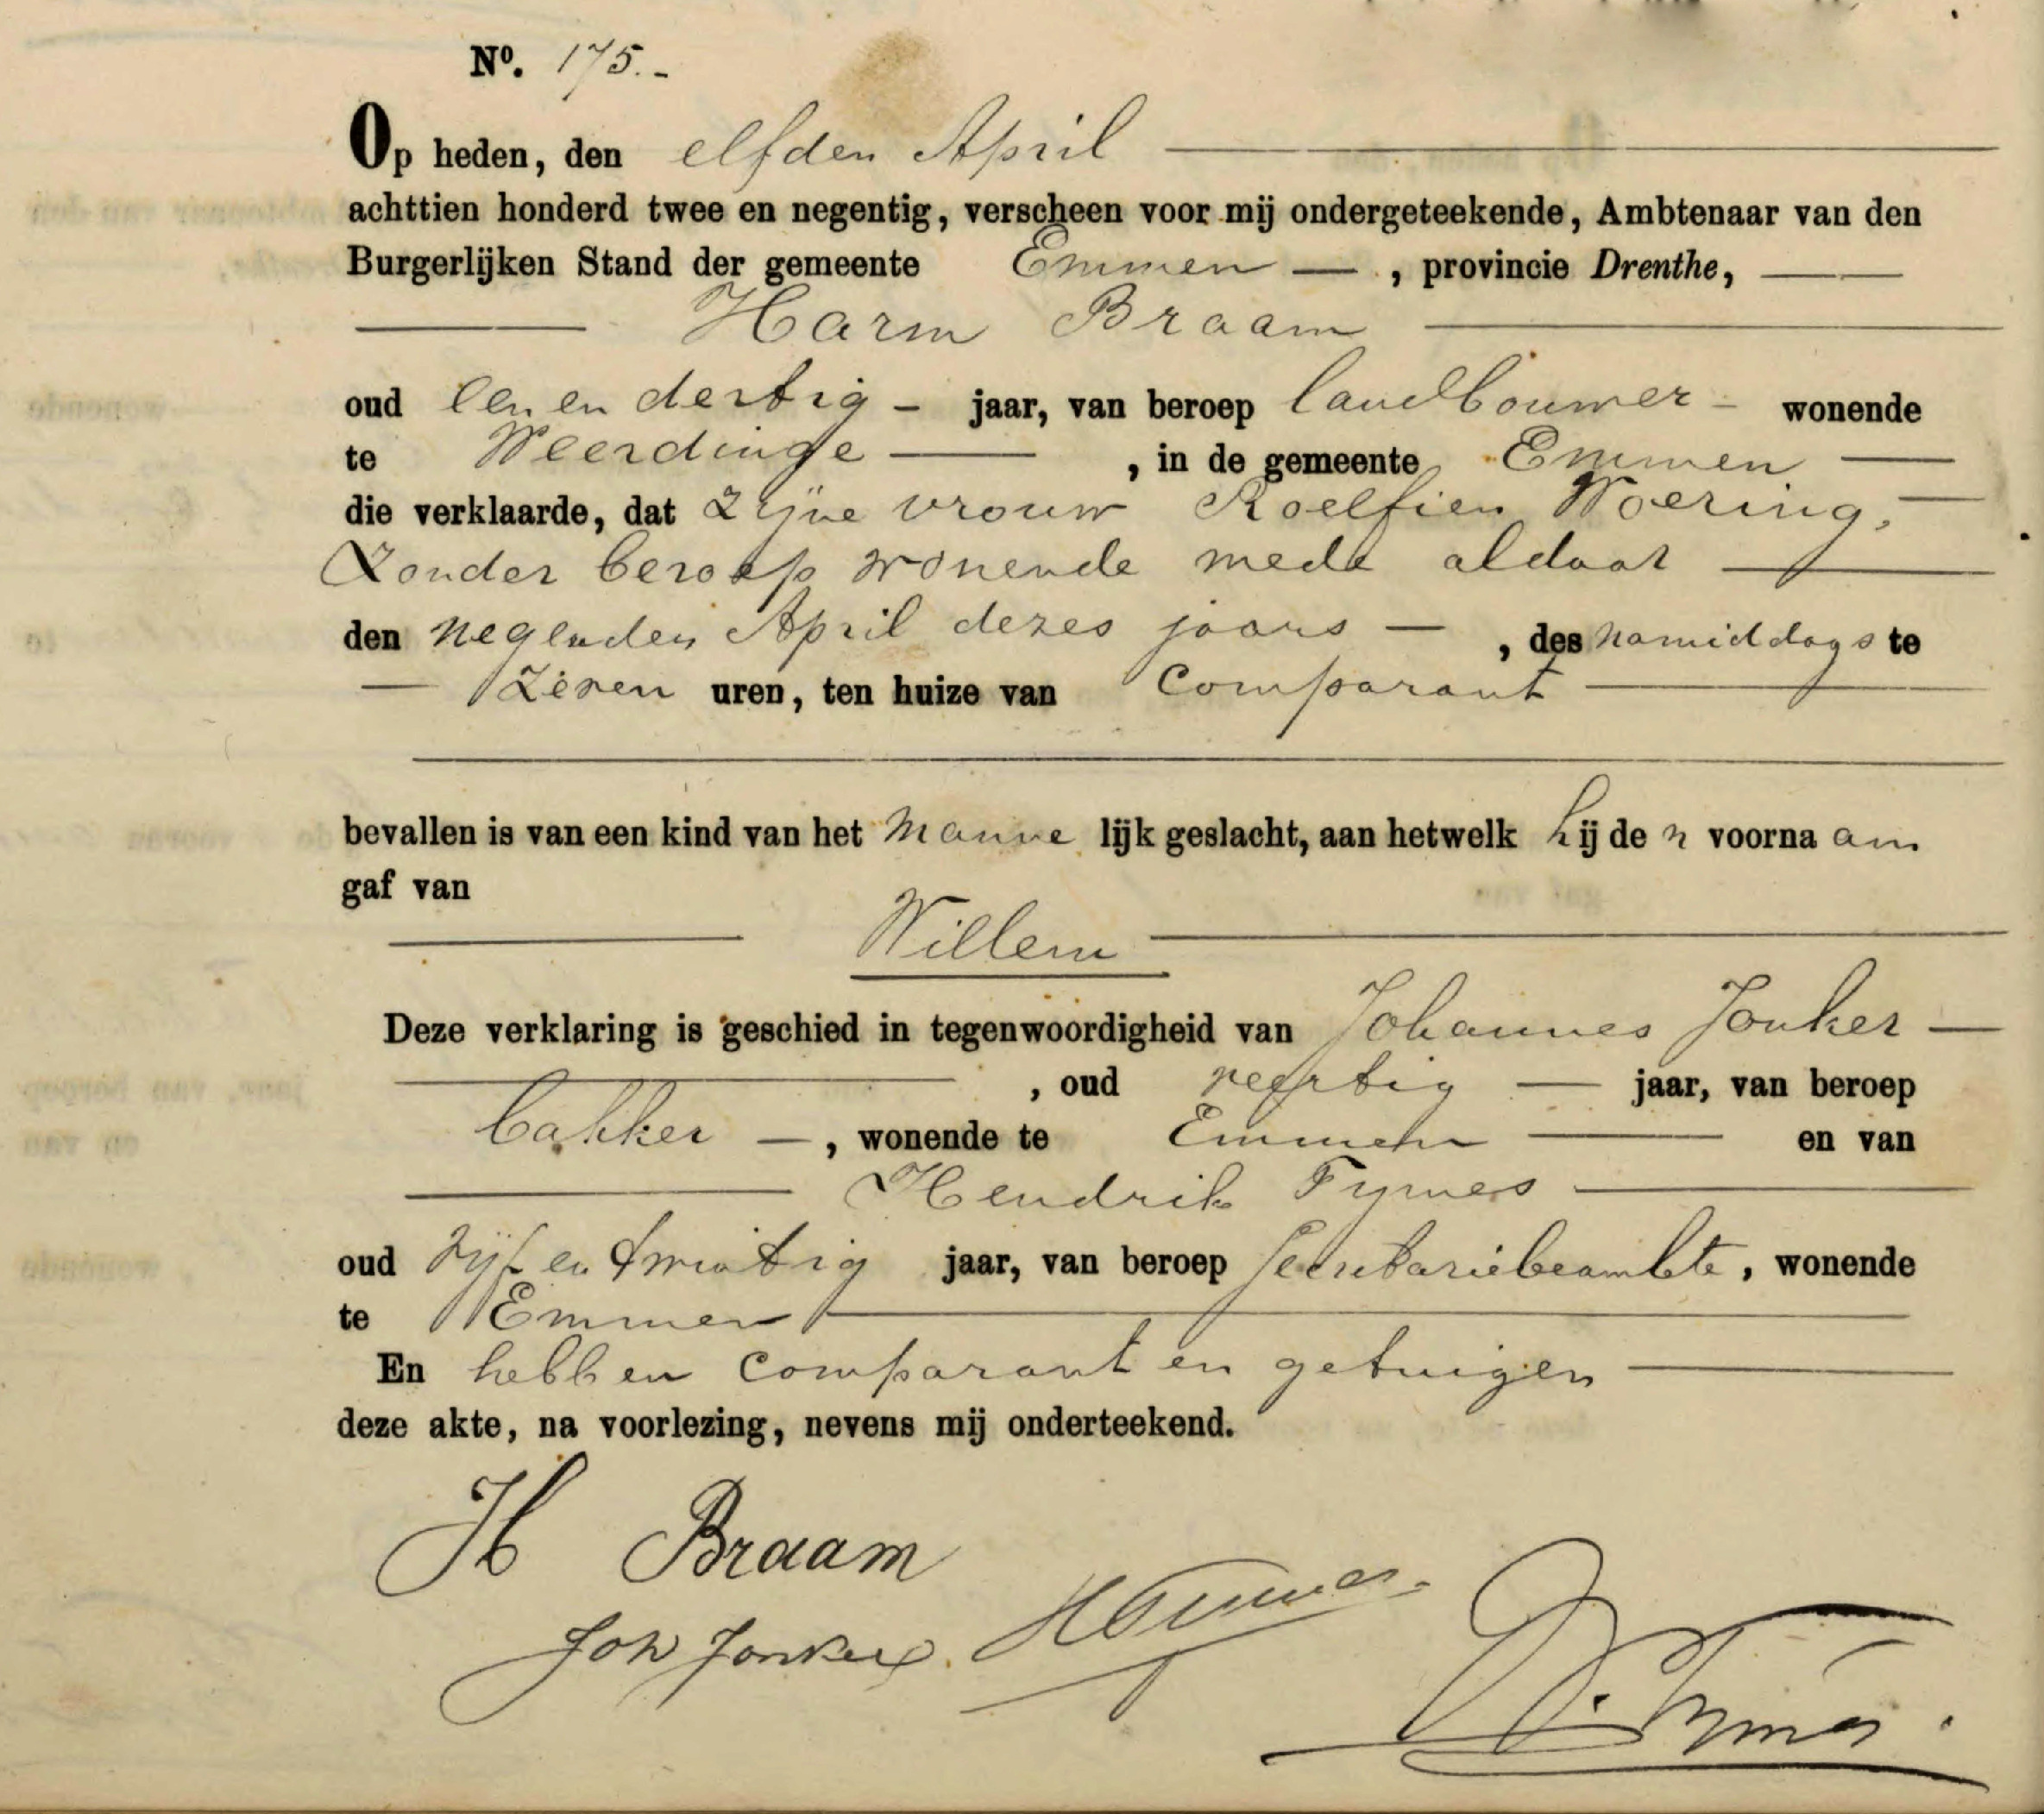 Nº. 175.-
Op heden, den elfden April
achttien honderd twee en negentig, verscheen voor mij ondergeteekende, Ambtenaar van den
Burgerlijken Stand der gemeente Emmen —, provincie Drenthe, —
— Harm Braam —
oud een en dertig - jaar, van beroep landbouwer - wonende
te Weerdinge —, in de gemeente Emmen —
die verklaarde, dat zijne vrouw Roelfien Woering, —
zonder beroep wonende mede aldaar —
den negenden April dezes jaars —, des namiddags te
— zeven uren, ten huize van Comparant —
bevallen is van een kind van het manne lijk geslacht, aan hetwelk hij de n voorna am
gaf van
— Willem —
Deze verklaring is geschied in tegenwoordigheid van Johannes Jonker —
—, oud veertig — jaar, van beroep
bakker —, wonende te Emmen — en van
— Hendrik Tymes —
oud vijf en twintig jaar, van beroep secretariebeambte, wonende
te Emmen —
En hebben comparant en getuigen —
deze akte, na voorlezing, nevens mij onderteekend.
H Braam
Joh Jonker. HTymes.